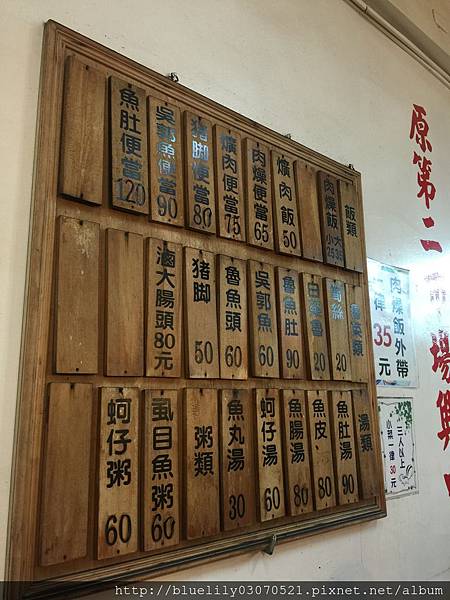 飯類
肉燥飯 大35 小25
爌肉飯 50
肉燥便當 65
爌肉便當 75
猪脚便當 80
吳郭魚便當 90
魚肚便當 120
魯菜類
白菜魯 20
魯魚肚 90
吳郭魚 60
魯魚頭 60
猪脚 50
滷大腸頭 80元
湯類
魚肚湯 90
魚皮 80
魚腸湯 80
蚵仔湯 60
魚丸湯 30
粥類
虱目魚粥 60
蚵仔粥 60
原第二
場興
肉燥飯外帶
一律35元
三人以上
小菜一律30元
http://bluelily03070521.pixnet.net/album